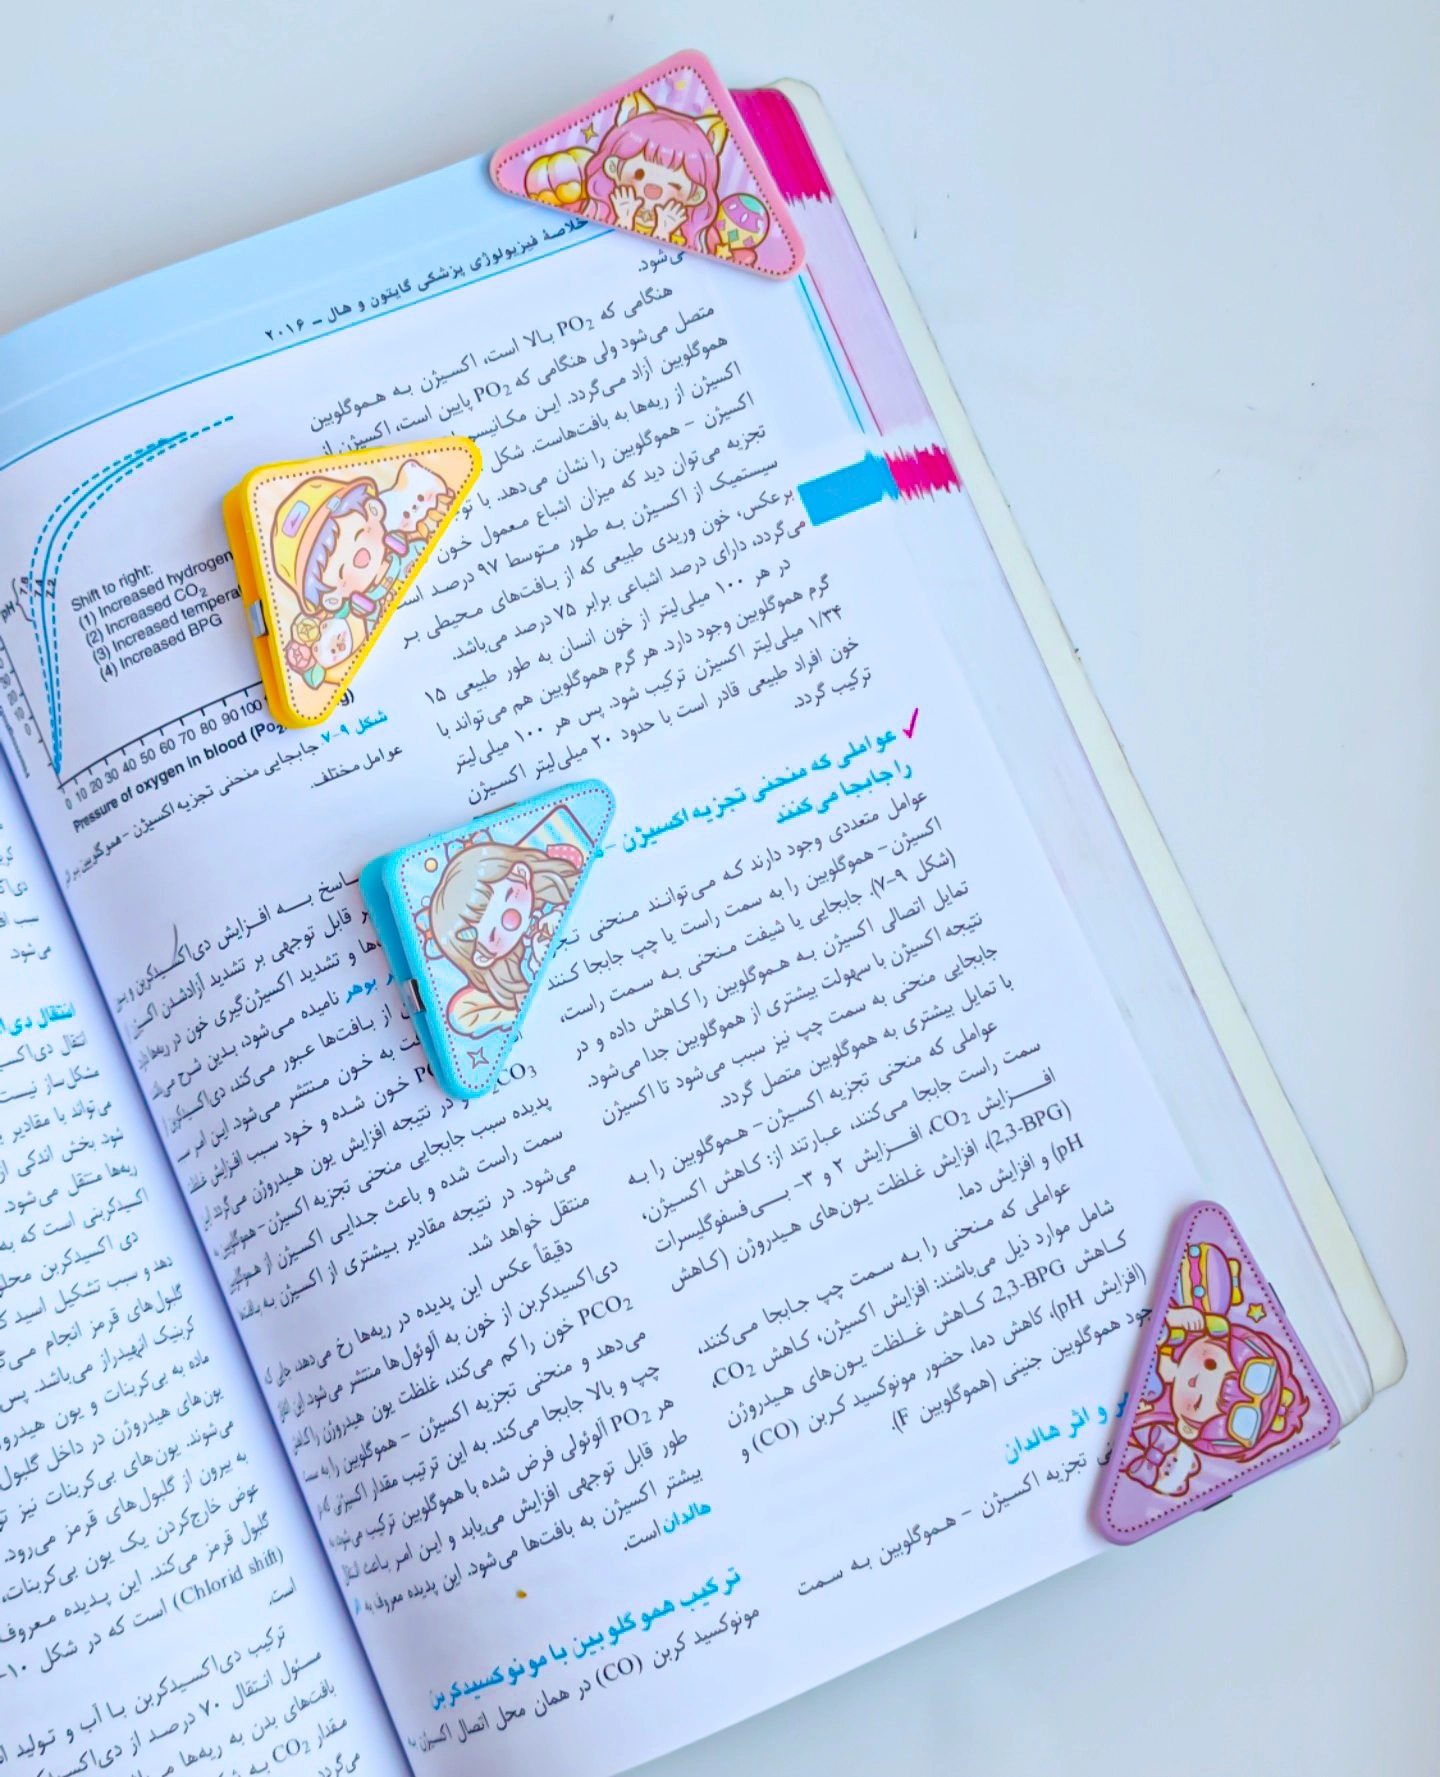 خلاصهٔ فیزیولوژی پزشکی گایتون و هال – ۲۰۱۶
می‌شود.
هنگامی که PO2 بالا است، اکسیژن به هموگلوبین
متصل می‌شود ولی هنگامی که PO2 پایین است، اکسیژن از
هموگلوبین آزاد می‌گردد. این مکانیسم
اکسیژن از ریه‌ها به بافت‌هاست. شکل
اکسیژن – هموگلوبین را نشان می‌دهد. با
تجزیه می‌توان دید که میزان اشباع معمول خون
سیستمیک از اکسیژن به طور متوسط ۹۷ درصد است
برعکس، خون وریدی طبیعی که از بافت‌های محیطی بر
می‌گردد، دارای درصد اشباعی برابر ۷۵ درصد می‌باشد.
در هر ۱۰۰ میلی‌لیتر از خون انسان به طور طبیعی ۱۵
گرم هموگلوبین وجود دارد. هر گرم هموگلوبین هم می‌تواند با
۱/۳۴ میلی‌لیتر اکسیژن ترکیب شود. پس هر ۱۰۰ میلی‌لیتر
خون افراد طبیعی قادر است با حدود ۲۰ میلی‌لیتر اکسیژن
ترکیب گردد.
عواملی که منحنی تجزیه اکسیژن –
را جابجا می‌کنند
عوامل متعددی وجود دارند که می‌توانند منحنی
اکسیژن – هموگلوبین را به سمت راست یا چپ جابجا کنند
(شکل ۹-۷). جابجایی یا شیفت منحنی به سمت راست،
تمایل اتصالی اکسیژن به هموگلوبین را کاهش داده و در
نتیجه اکسیژن با سهولت بیشتری از هموگلوبین جدا می‌شود.
جابجایی منحنی به سمت چپ نیز سبب می‌شود تا اکسیژن
با تمایل بیشتری به هموگلوبین متصل گردد.
عواملی که منحنی تجزیه اکسیژن – هموگلوبین را به
سمت راست جابجا می‌کنند، عبارتند از: کاهش اکسیژن،
افزایش CO2، افزایش ۲ و ۳- بی‌فسفوگلیسرات
(2,3-BPG)، افزایش غلظت یون‌های هیدروژن (کاهش
pH) و افزایش دما.
عواملی که منحنی را به سمت چپ جابجا می‌کنند،
شامل موارد ذیل می‌باشند: افزایش اکسیژن، کاهش CO2،
کاهش 2,3-BPG، کاهش غلظت یون‌های هیدروژن
(افزایش pH)، کاهش دما، حضور مونوکسید کربن (CO) و
هموگلوبین جنینی (هموگلوبین F).
و اثر هالدان
تجزیه اکسیژن – هموگلوبین به سمت
pH
7.6
7.4
7.2
Shift to right:
(1) Increased hydrogen
(2) Increased CO2
(3) Increased
(4) Increased BPG
0 10 20 30 40 50 60 70 80 90 100
Pressure of oxygen in blood
شکل ۹-۷. جابجایی منحنی تجزیه اکسیژن – هموگلوبین برای
عوامل مختلف.
به افزایش دی‌اکسیدکربن و
قابل توجهی بر تشدید آزادشدن اکسیژن
و تشدید اکسیژن‌گیری خون در ریه‌ها
بوهر نامیده می‌شود، بدین شرح
از بافت‌ها عبور می‌کند، دی‌اکسیدکربن
به خون منتشر می‌شود. این امر
خون شده و خود سبب افزایش غلظت
در نتیجه افزایش یون هیدروژن می‌گردد. این
پدیده سبب جابجایی منحنی تجزیه اکسیژن – هموگلوبین به
سمت راست شده و باعث جدایی اکسیژن از هموگلوبین
می‌شود. در نتیجه مقادیر بیشتری از اکسیژن به بافت‌ها
منتقل خواهد شد.
دقیقاً عکس این پدیده در ریه‌ها رخ می‌دهد
دی‌اکسیدکربن از خون به آلوئول‌ها منتشر می‌شود. این
PCO2 خون را کم می‌کند، غلظت یون هیدروژن را کاهش
می‌دهد و منحنی تجزیه اکسیژن – هموگلوبین را به سمت
چپ و بالا جابجا می‌کند. به این ترتیب مقدار اکسیژنی که در
هر PO2 آلوئولی فرض شده با هموگلوبین ترکیب می‌شود، به
طور قابل توجهی افزایش می‌یابد و این امر باعث انتقال
بیشتر اکسیژن به بافت‌ها می‌شود. این پدیده معروف به اثر
هالدان است.
ترکیب هموگلوبین با مونوکسیدکربن
مونوکسید کربن (CO) در همان محل اتصال اکسیژن به
می‌شود.
انتقال
انتقال
مشکل‌ساز نیست
می‌تواند با مقادیر
شود بخش اندکی از
ریه‌ها منتقل می‌شود.
اکسیدکربنی است که به
دی اکسیدکربن
دهد و سبب تشکیل اسید
گلبول‌های قرمز انجام
کربنیک انهیدراز می‌باشد. پس
ماده به بی‌کربنات و یون
یون‌های هیدروژن در داخل
می‌شوند. یون‌های بی‌کربنات نیز
به بیرون از گلبول‌های قرمز می‌رود.
عوض خارج‌کردن یک یون بی‌کربنات،
گلبول قرمز می‌کند. این پدیده معروف
(Chlorid shift) است که در شکل
است.
ترکیب دی‌اکسیدکربن با آب و تولید
مسئول انتقال ۷۰ درصد از
بافت‌های بدن به ریه‌ها
مقدار CO2 به
می‌گردد